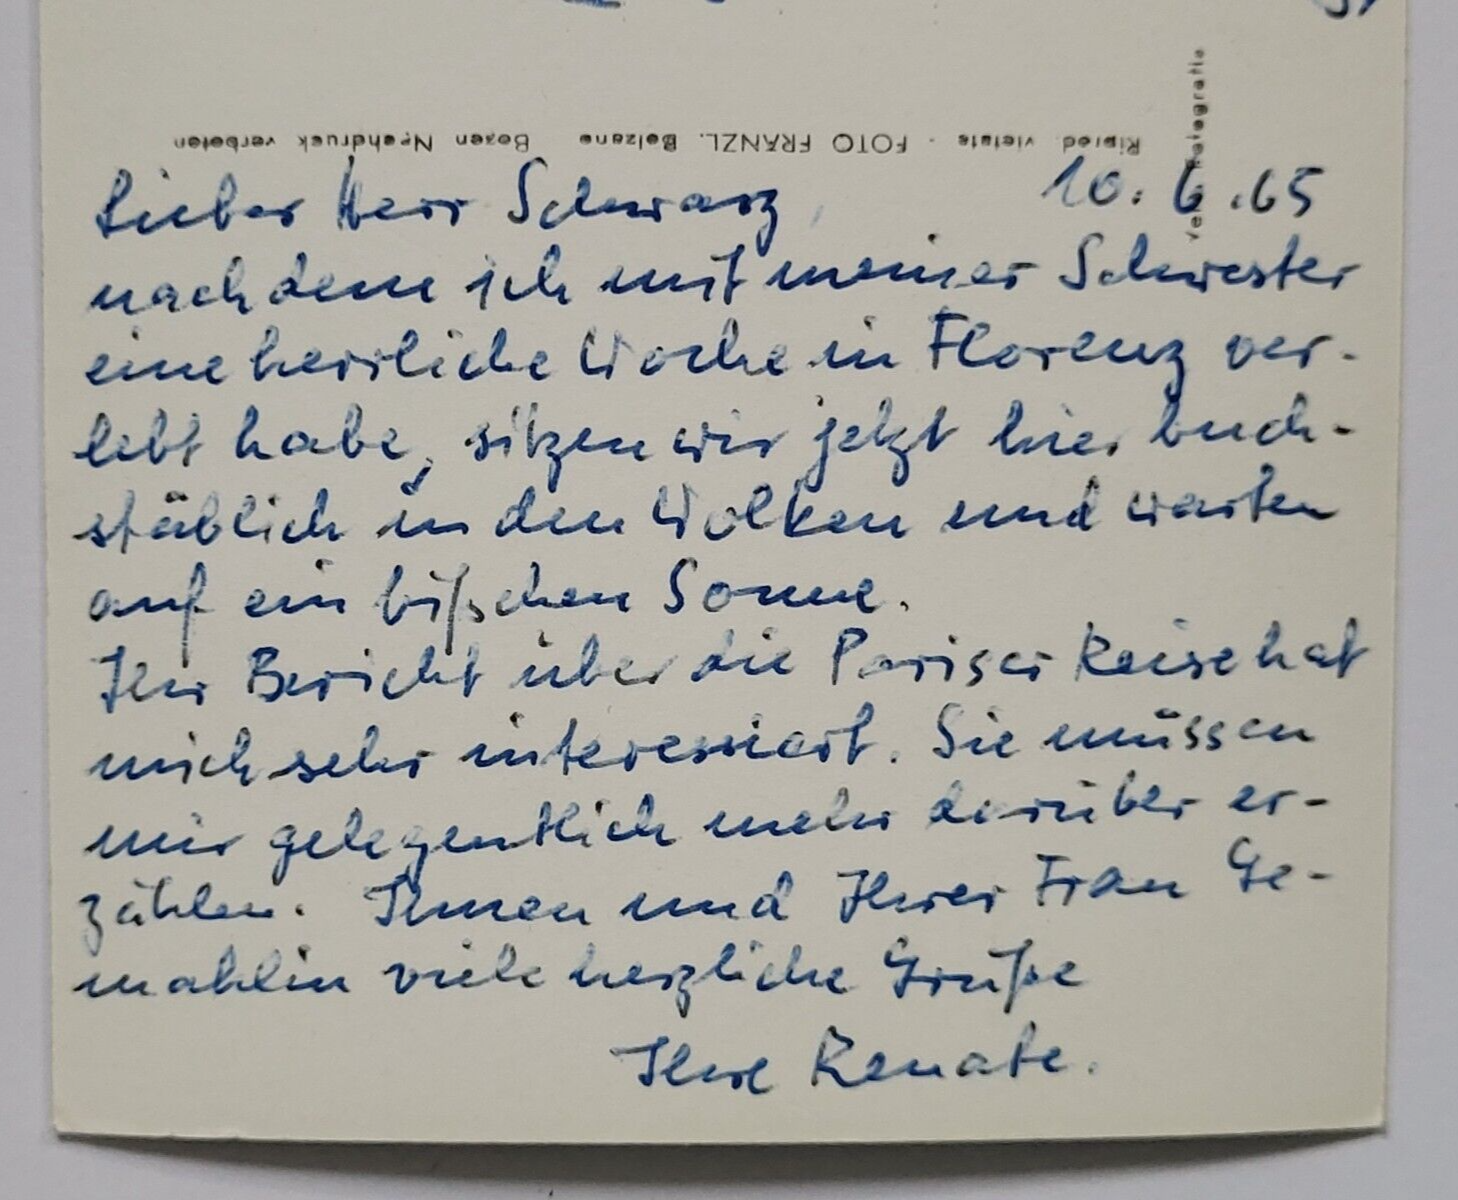 Riprod. vietata - FOTO FRÄNZL. Bolzano Bozen Nachdruck verboten
Lieber Herr Schwarz, 10.6.65
nachdem ich mit meiner Schwester
eine herrliche Woche in Florenz ver-
lebt habe, sitzen wir jetzt hier buch-
stäblich in den Wolken und warten
auf ein bißchen Sonne.
Ihr Bericht über die Pariser Reise hat
mich sehr interessiert. Sie müssen
mir gelegentlich mehr darüber er-
zählen. Ihnen und Ihrer Frau Ge-
mahlin viele herzliche Grüße
Ihre Renate.